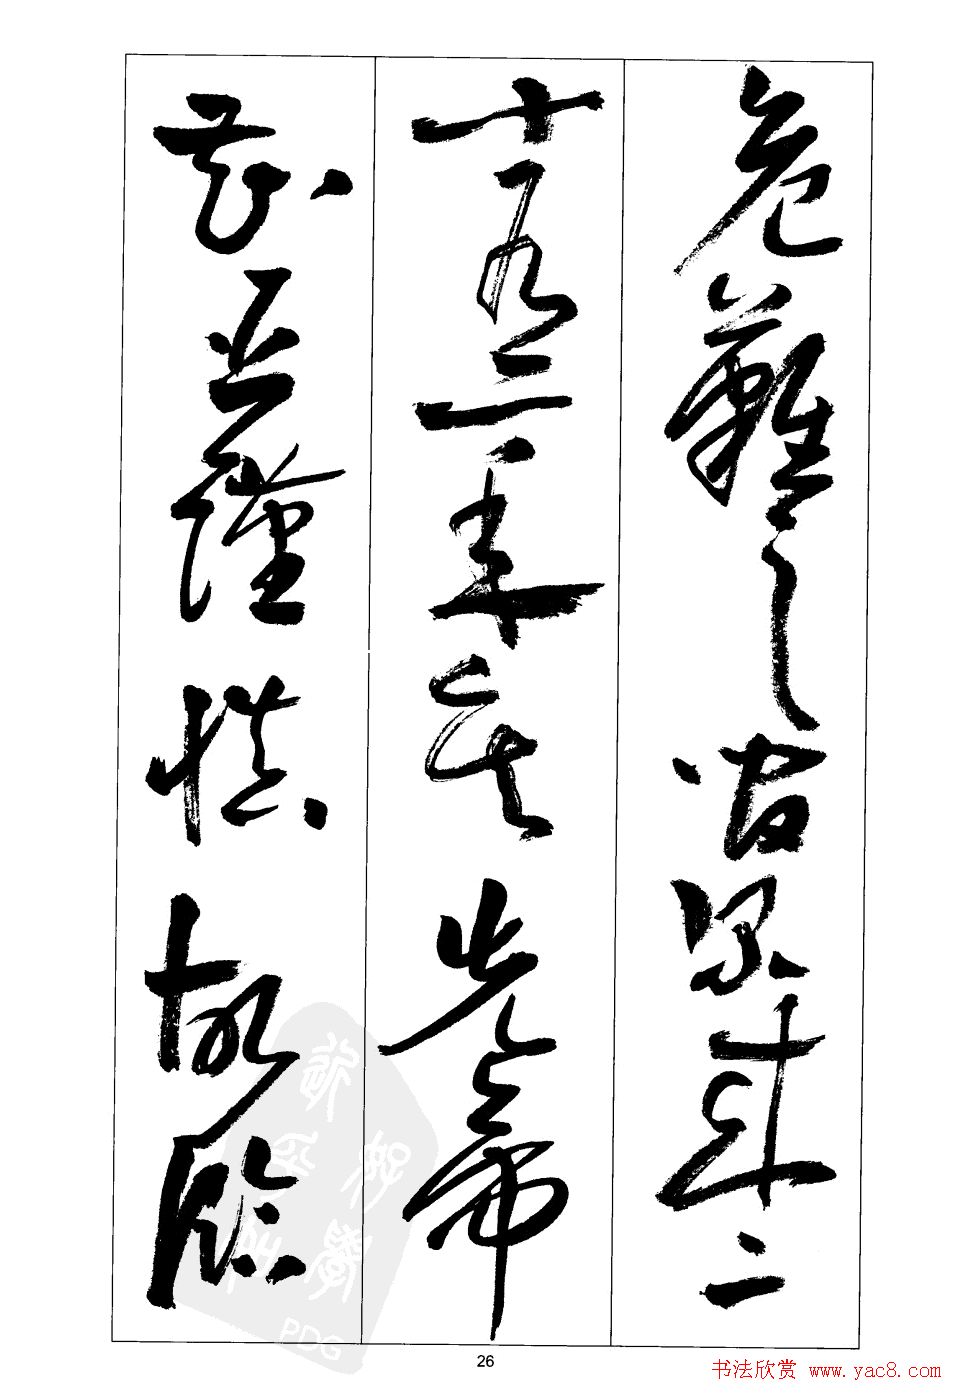 危難之間爾来二
十有一年矣先帝
知臣謹慎故臨
PDG
26
书法欣赏 www.yac8.com